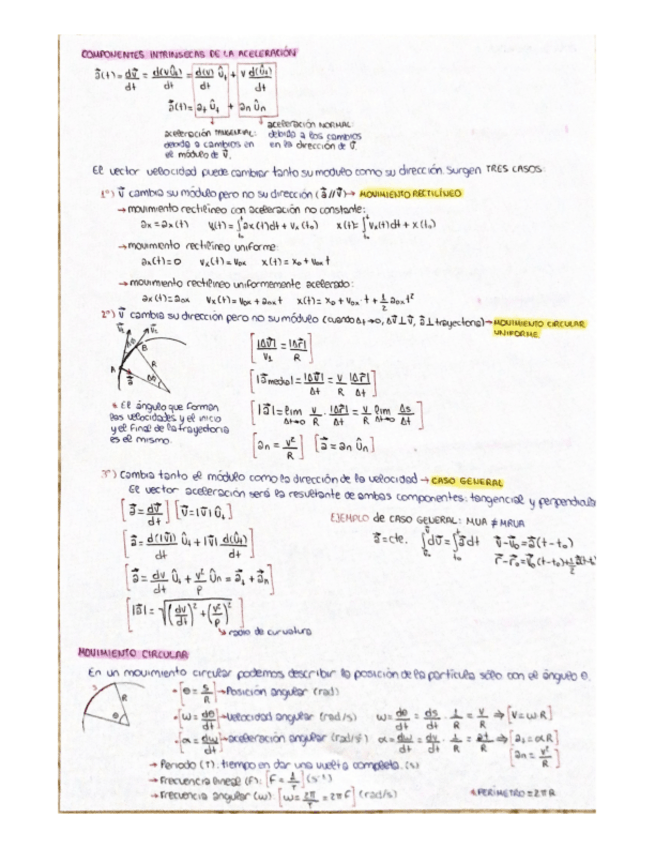 COMPONENTES INTRÍNSECAS DE LA ACELERACIÓN
a⃗(t) = dv⃗/dt = d(vû_t)/dt = d(v)/dt û_t + v d(û_t)/dt
a⃗(t) = a_t û_t + a_n û_n
aceleración TANGENCIAL: debida a cambios en el módulo de v⃗.
aceleración NORMAL: debida a los cambios en la dirección de v⃗.
El vector velocidad puede cambiar tanto su modulo como su dirección. Surgen TRES CASOS:
1º) v⃗ cambia su módulo pero no su dirección (a⃗ // v⃗) → MOVIMIENTO RECTILÍNEO
→ movimiento rectilíneo con aceleración no constante:
→ movimiento rectilíneo uniforme:
a_x(t) = 0 v_x(t) = v_0x x(t) = x_0 + v_0x t
→ movimiento rectilíneo uniformemente acelerado:
a_x(t) = a_0x v_x(t) = v_0x + a_0x t x(t) = x_0 + v_0x · t + 1/2 a_0x t²
2º) v⃗ cambia su dirección pero no su módulo (cuando Δt→0, Δv⃗ ⊥ v⃗, a⃗ ⊥ trayectoria) → MOVIMIENTO CIRCULAR UNIFORME
A B R Δθ a⃗
[ |Δv⃗|/v_1 = |Δr⃗|/R ]
[ |a⃗ media| = |Δv⃗|/Δt = v/R |Δr⃗|/Δt ]
[ |a⃗| = lim Δt→0 v/R · |Δr⃗|/Δt = v/R lim Δt→0 Δs/Δt ]
* El ángulo que forman las velocidades y el inicio y el final de la trayectoria es el mismo.
[ a_n = v²/R ] [ a⃗ = a_n û_n ]
3º) Cambia tanto el módulo como la dirección de la velocidad → CASO GENERAL
El vector aceleración será la resultante de ambas componentes: tangencial y perpendicula
[ a⃗ = dv⃗/dt ] [ v⃗ = |v⃗| û_t ]
EJEMPLO de CASO GENERAL: MUA ≠ MRUA
a⃗ = cte. ∫dv⃗ = ∫a⃗ dt v⃗ - v⃗_0 = a⃗(t - t_0)
[ a⃗ = d(|v⃗|)/dt û_t + |v⃗| d(û_t)/dt ]
[ a⃗ = dv/dt û_t + v²/ρ û_n = a⃗_t + a⃗_n ]
[ |a⃗| = √((dv/dt)² + (v²/ρ)²) ]
→ radio de curvatura
MOVIMIENTO CIRCULAR
En un movimiento circular podemos describir la posición de la partícula sólo con el ángulo θ.
R θ
· [ θ = s/R ] → Posición angular (rad)
· [ ω = dθ/dt ] → velocidad angular (rad/s) ω = dθ/dt = ds/dt · 1/R = v/R ⇒ [ v = ω R ]
· [ α = dω/dt ] → aceleración angular (rad/s²) α = dω/dt = dv/dt · 1/R = a_t/R ⇒ [ a_t = αR ]
[ a_n = v²/R ]
→ Periodo (T): tiempo en dar una vuelta completa. (s)
→ Frecuencia lineal (F): [ F = 1/T ] (s⁻¹)
→ Frecuencia angular (ω): [ ω = 2π/T = 2πF ] (rad/s)
* PERÍMETRO = 2πR